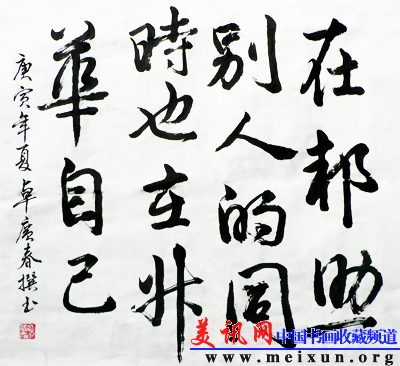 在邦助
别人的同
時也在升
華自己
庚寅年夏卓廣春撰书
美讯网 中国书画收藏频道
www.meixun.org